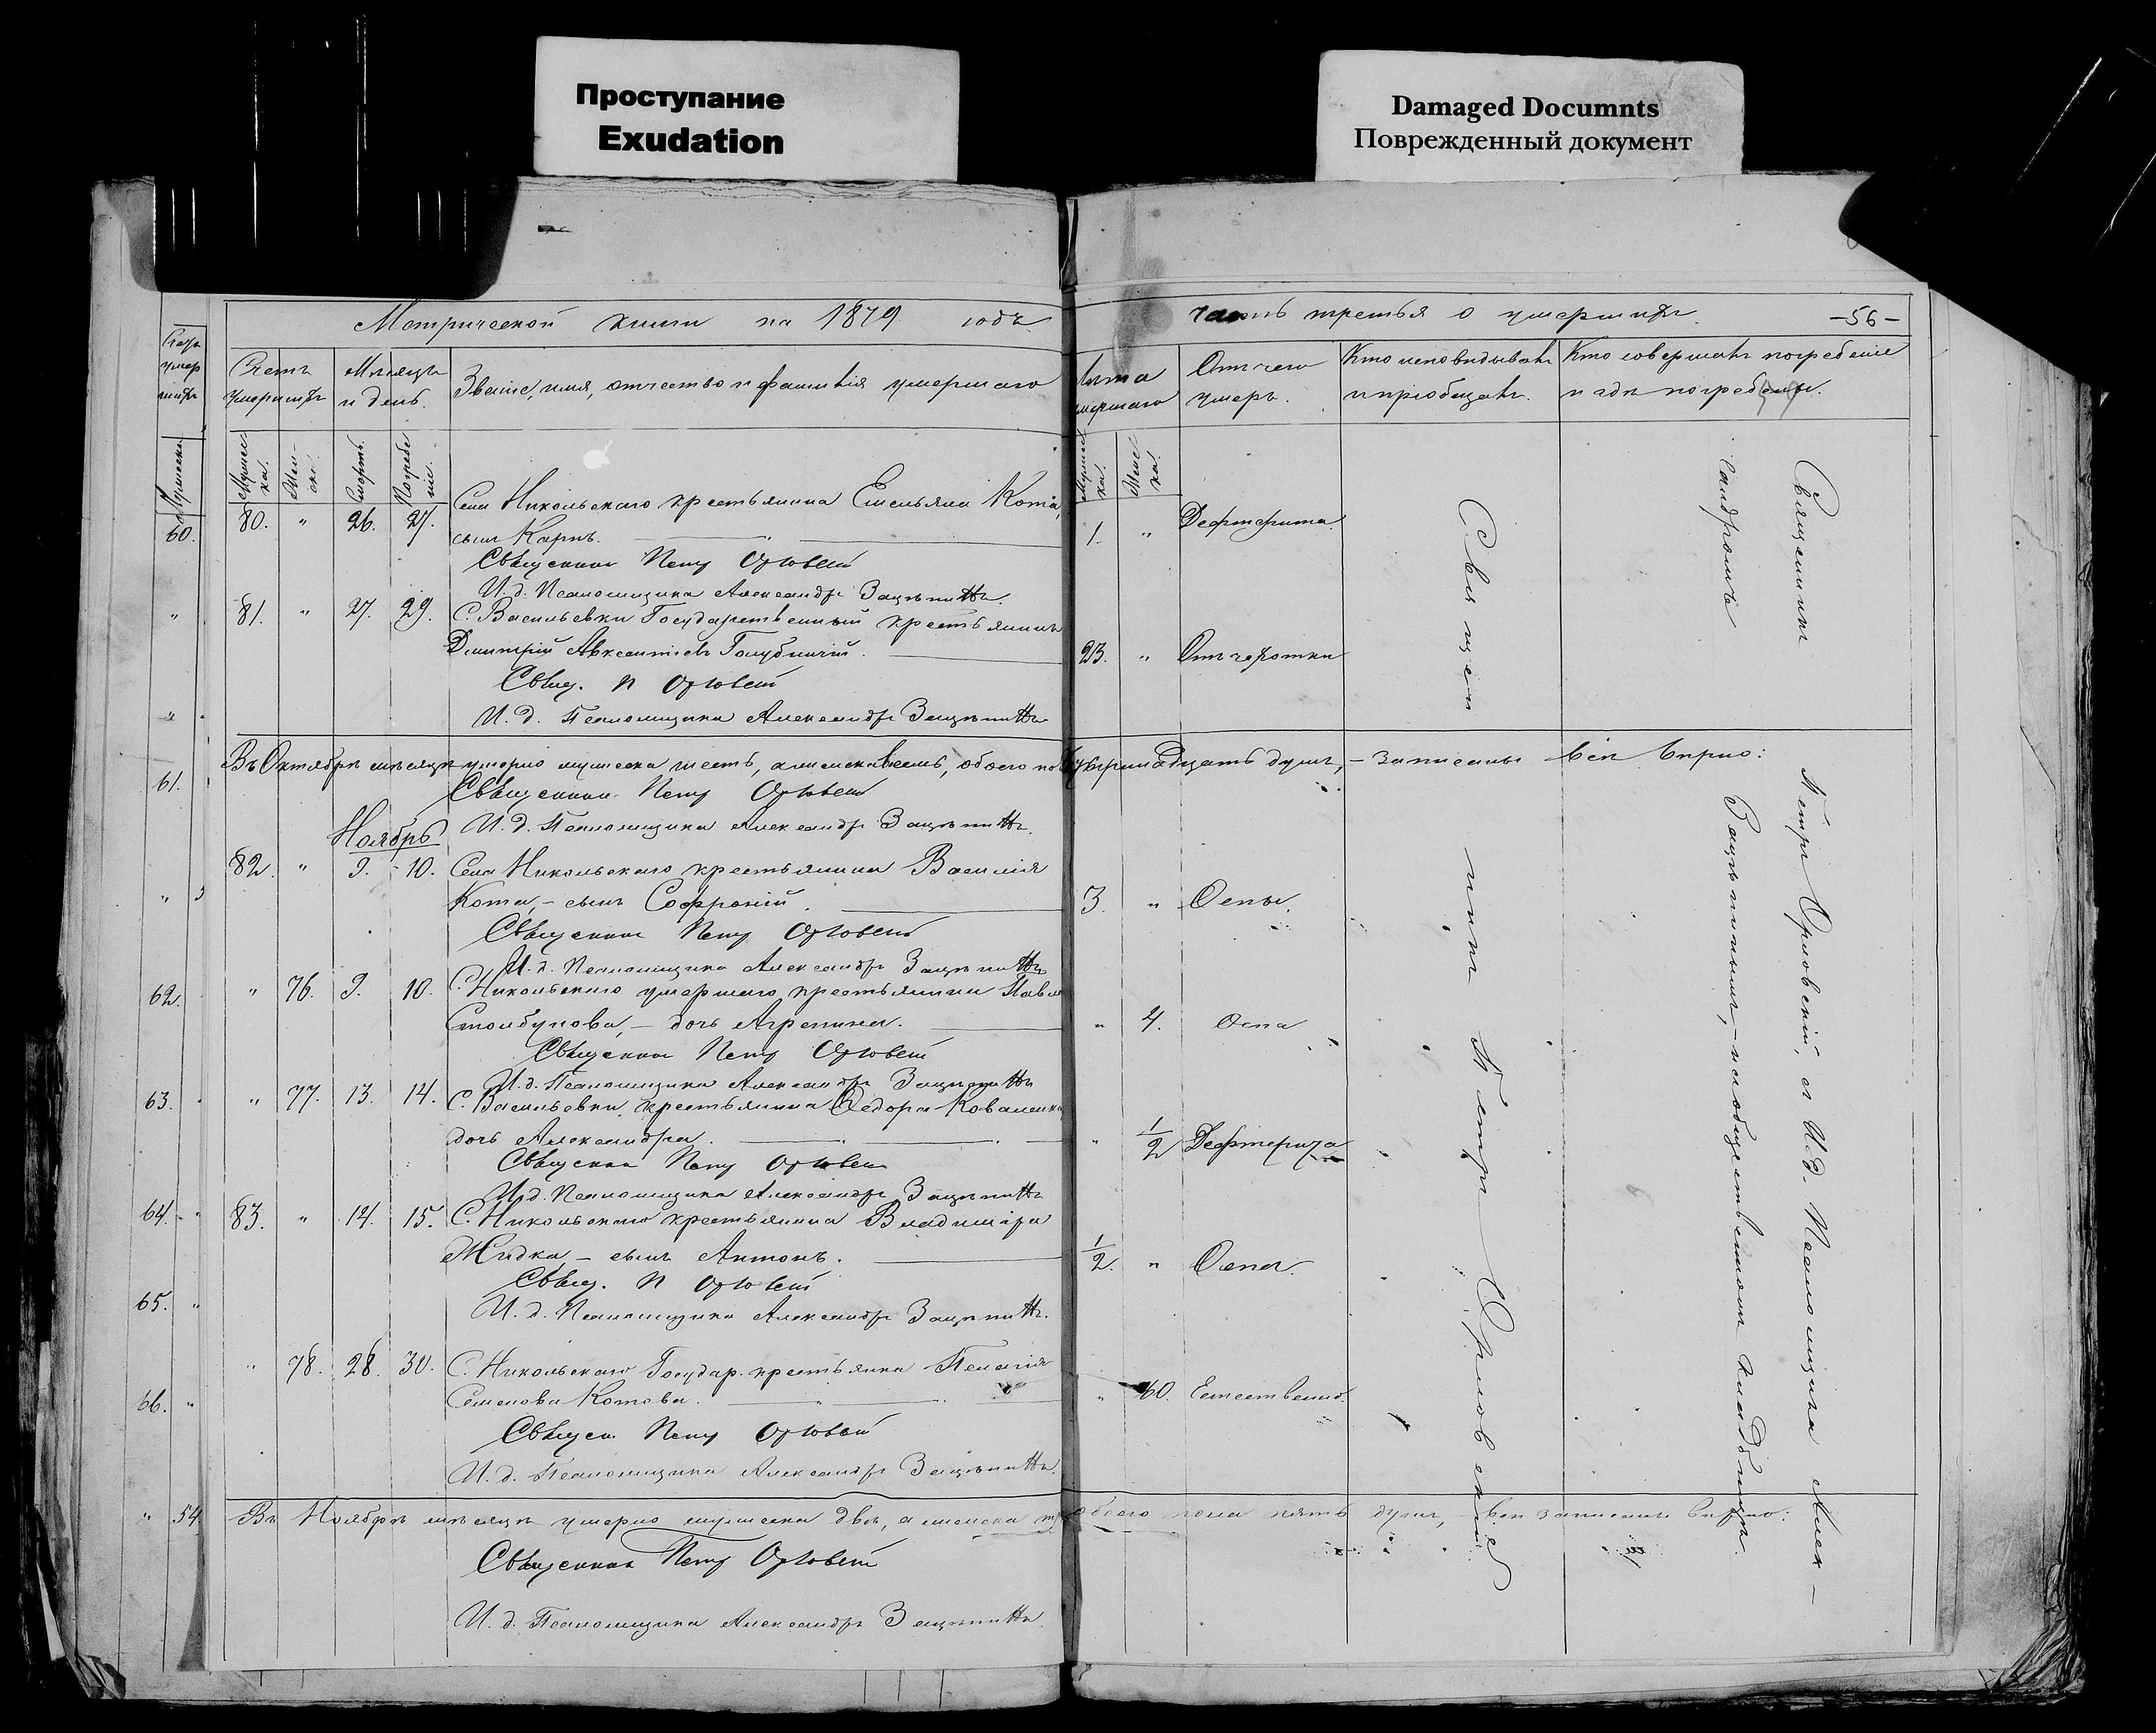 Проступание
Exudation
Damaged Documnts
Поврежденный документ
Метрической книги на 1879 годъ
часть третья о умершихъ.
-56-
Счетъ умершихъ
Мѣсяцъ и день.
Званіе, имя, отчество и фамилія умершаго
Лѣта умершаго
Отъ чего умеръ.
Кто исповѣдывалъ и пріобщалъ.
Кто совершалъ погребеніе и гдѣ погребены.
60.
80. " 26. 27. Села Никольскаго крестьянина Емельяна Кота,
сынъ Карпъ. 1. " Дефтерита.
Священникъ Петръ Орловскій
И. д. Псаломщика Александръ Зацѣпинъ.
" 81. " 27. 29. С. Васильевки Государственный крестьянинъ
Димитрій Авксентіевъ Голубничій. 23. " Отъ чахотки
Свящ. П Орловскій
И. д. Псаломщика Александръ Зацѣпинъ
Въ Октябрѣ мѣсяцѣ умерло мужеска шесть, а женска восемь, обоего пола четырнадцать душъ, – записаны всѣ вѣрно:
61.
Священникъ Петръ Орловскій
И. д. Псаломщика Александръ Зацѣпинъ.
Ноябрь
82. " 9. 10. Села Никольскаго крестьянина Василія
Кота, – сынъ Софроній. 3. " Оспы.
Священникъ Петръ Орловскій
И. д. Псаломщика Александръ Зацѣпинъ
62. " 76. 9. 10. С. Никольскаго умершаго крестьянина Павла
Столбунова, – дочь Агрепина. " 4. Оспа
Священникъ Петръ Орловскій
И. д. Псаломщика Александръ Зацѣпинъ
63. " 77. 13. 14. С. Васильевки крестьянина Ѳедора Коваленка
дочь Александра. " 1/2 Дефтерита
Священникъ Петръ Орловскій
И. д. Псаломщика Александръ Зацѣпинъ
64. " 83. " 14. 15. С. Никольскаго крестьянина Владиміра
Жидка – сынъ Антонъ. 1/2. " Оспа.
Свящ. П Орловскій
65. " И. д. Псаломщика Александръ Зацѣпинъ.
" 78. 28. 30. С. Никольскаго Государ. крестьянка Пелагія
66. " Семенова Котова. " 60. Естествення.
Священ Петръ Орловскій
И. д. Псаломщика Александръ Зацѣпинъ.
" 54. Въ Ноябрѣ мѣсяцѣ умерло мужеска два, а женска обоего пола пять душъ, – всѣ записаны вѣрно:
Священникъ Петръ Орловскій
И. д. Псаломщика Александръ Зацѣпинъ.
Священникъ Петръ Орловскій
Священникъ Петръ Орловскій, съ И.д. Псаломщика Алек-
сандромъ Зацѣпинымъ, – на общественномъ кладбищѣ.